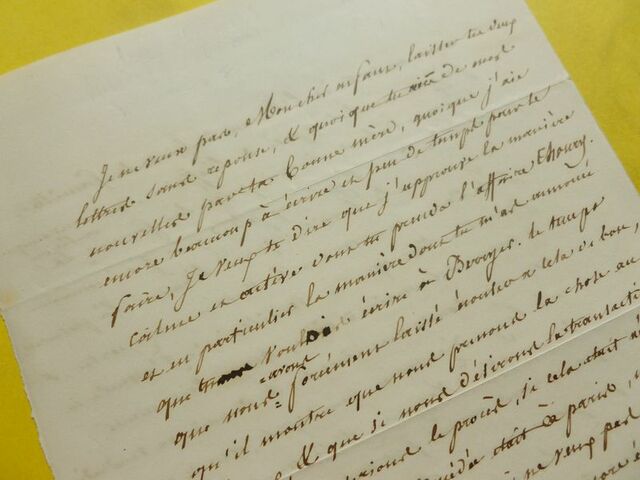 Je ne veux pas, Mon cher enfant, laisser tes deux
lettres sans reponse, & quoique tu aies de mes
nouvelles par ta bonne mère, quoique j'aie
encore beaucoup à écrire et peu de temps pour le
faire, Je veux te dire que j'approuve la manière
calme et dont tu prends l'affaire Thoury.
et en particulier la manière dont tu m'as annoncé
que vouloir écrire à Bourges. le temps
que nous avons forcément laissé écouler a cela de bon,
qu'il montre que nous prenons la chose au
& que si nous désirons la transacti
le procès, si cela était
était à paris,
ne veux pas